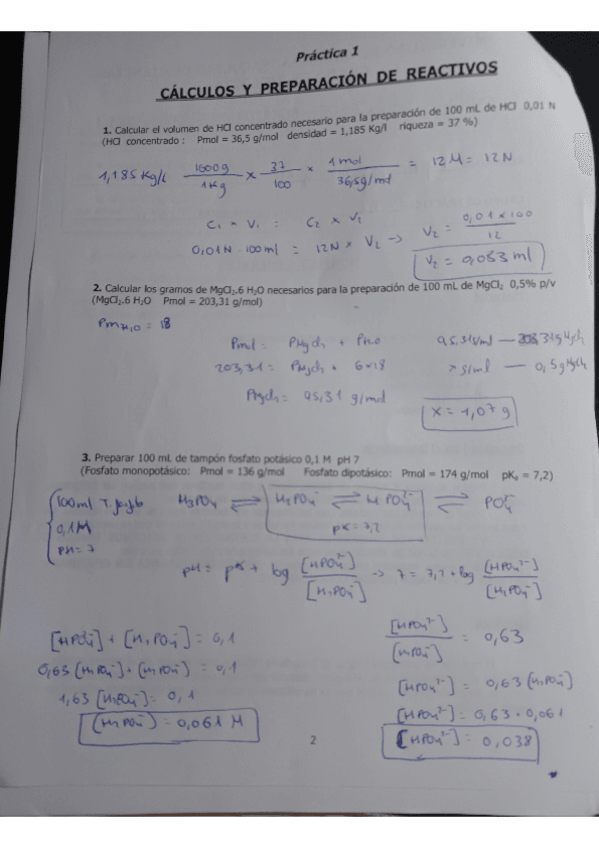 Práctica 1
CÁLCULOS Y PREPARACIÓN DE REACTIVOS
1. Calcular el volumen de HCl concentrado necesario para la preparación de 100 mL de HCl 0,01 N
(HCl concentrado : Pmol = 36,5 g/mol densidad = 1,185 Kg/l riqueza = 37 %)
1,185 Kg/l 1000g/1Kg x 37/100 x 1 mol/36,5g/mol = 12 M = 12 N
C₁ × V₁ = C₂ × V₂
0,01N · 100ml = 12N × V₂ -> V₂ = 0,01 × 100/12
V₂ = 0,083 ml
2. Calcular los gramos de MgCl₂.6 H₂O necesarios para la preparación de 100 mL de MgCl₂ 0,5% p/v
(MgCl₂.6 H₂O Pmol = 203,31 g/mol)
Pm H₂O = 18
203,31 = 6×18
95,31 g/mol
0,5 g
x = 1,07 g
3. Preparar 100 mL de tampón fosfato potásico 0,1 M pH 7
(Fosfato monopotásico: Pmol = 136 g/mol Fosfato dipotásico: Pmol = 174 g/mol pKₐ = 7,2)
100ml
0,1M
pH = 7
H₃PO₄ ⇌ H₂PO₄⁻ ⇌ HPO₄²⁻ ⇌ PO₄³⁻
pK = 7,2
pH = pK + log [HPO₄²⁻]/[H₂PO₄⁻] -> 7 = 7,2 + log [HPO₄²⁻]/[H₂PO₄⁻]
[HPO₄²⁻] + [H₂PO₄⁻] = 0,1
0,63 [H₂PO₄⁻] + [H₂PO₄⁻] = 0,1
1,63 [H₂PO₄⁻] = 0,1
[H₂PO₄⁻] = 0,061 M
[HPO₄²⁻]/[H₂PO₄⁻] = 0,63
[HPO₄²⁻] = 0,63 [H₂PO₄⁻]
[HPO₄²⁻] = 0,63 · 0,061
[HPO₄²⁻] = 0,038
2